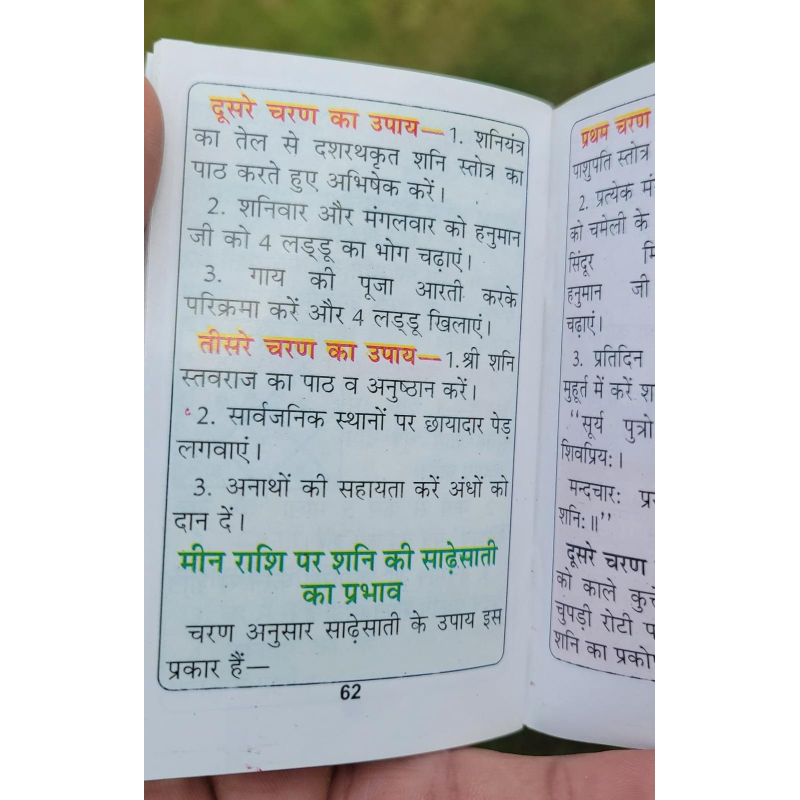 दूसरे चरण का उपाय— 1. शनियंत्र
का तेल से दशरथकृत शनि स्तोत्र का
पाठ करते हुए अभिषेक करें।
2. शनिवार और मंगलवार को हनुमान
जी को 4 लड्डू का भोग चढ़ाएं।
3. गाय की पूजा आरती करके
परिक्रमा करें और 4 लड्डू खिलाएं।
तीसरे चरण का उपाय— 1.श्री शनि
स्तवराज का पाठ व अनुष्ठान करें।
2. सार्वजनिक स्थानों पर छायादार पेड़
लगवाएं।
3. अनाथों की सहायता करें अंधों को
दान दें।
मीन राशि पर शनि की साढ़ेसाती
का प्रभाव
चरण अनुसार साढ़ेसाती के उपाय इस
प्रकार हैं—
62
प्रथम चरण
पाशुपति स्तोत्र
2. प्रत्येक
को चमेली के
सिंदूर
हनुमान जी
चढ़ाएं।
3. प्रतिदिन
मुहूर्त में करें
‘‘सूर्य पुत्रो
शिवप्रियः।
मन्दचारः
शनिः॥’’
दूसरे चरण
को काले
चुपड़ी रोटी
शनि का